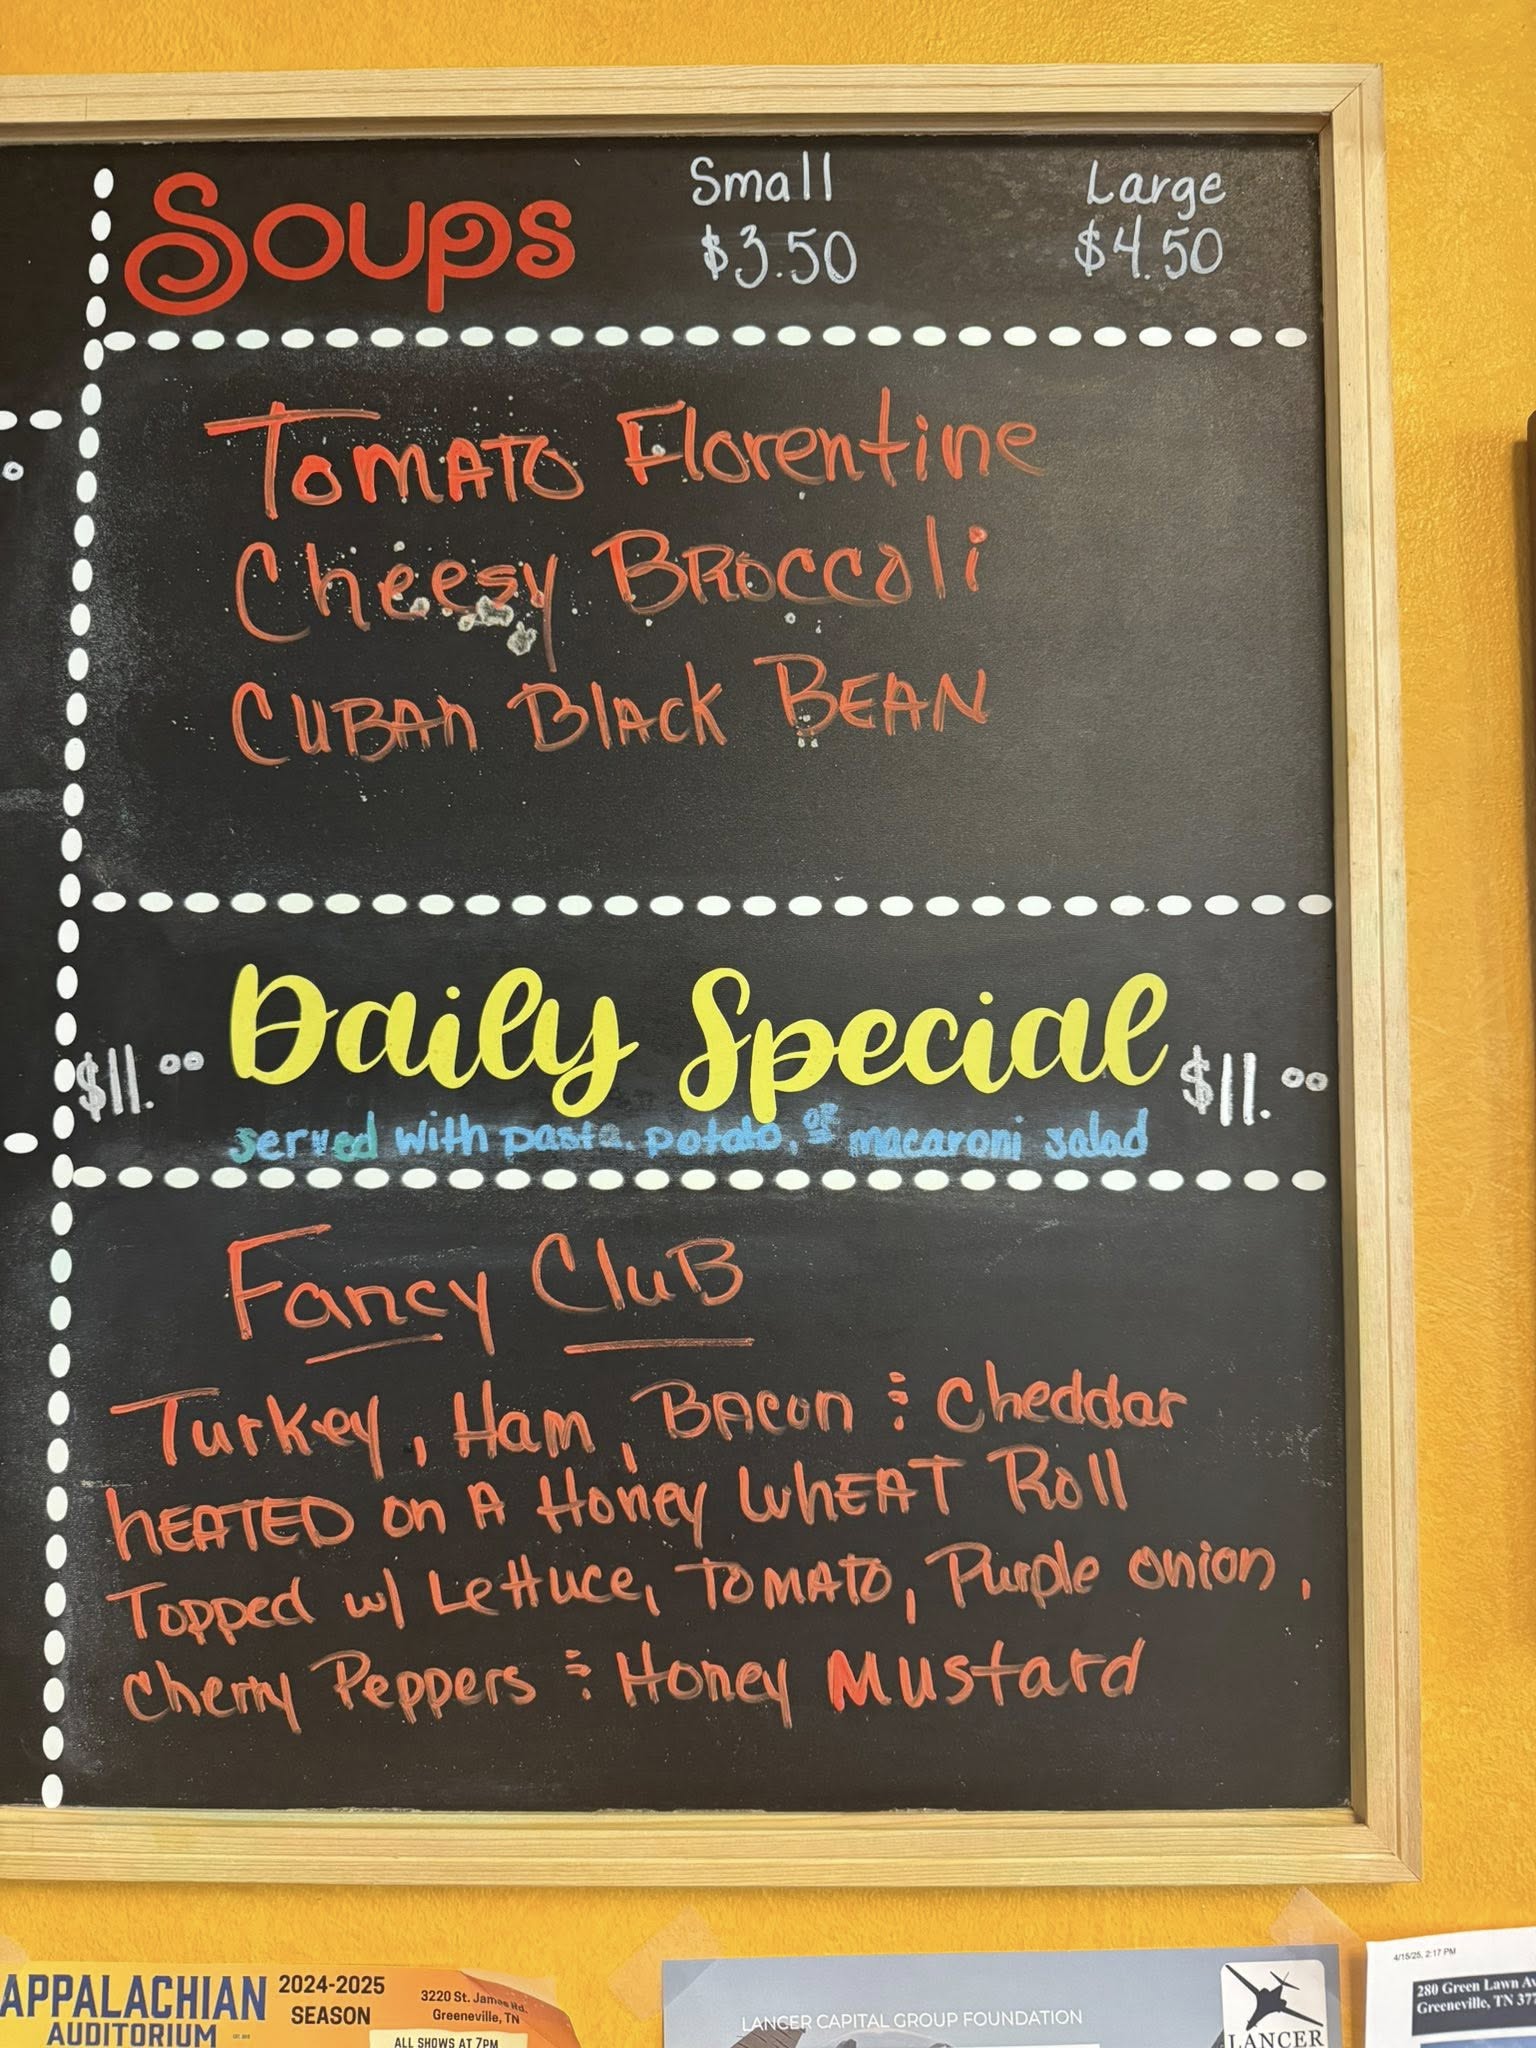 Soups
Small
$3.50
Large
$4.50
Tomato Florentine
Cheesy Broccoli
Cuban Black Bean
$11.00
Daily Special
$11.00
served with pasta, potato, or macaroni salad
Fancy Club
Turkey, Ham, Bacon & Cheddar
heated on a Honey Wheat Roll
Topped w/ Lettuce, Tomato, Purple onion,
Cherry Peppers & Honey Mustard
APPALACHIAN
AUDITORIUM
2024-2025
SEASON
3220 St. James Rd.
Greeneville, TN
ALL SHOWS AT 7PM
LANCER CAPITAL GROUP FOUNDATION
LANCER
4/15/25, 2:17 PM
280 Green Lawn Av
Greeneville, TN 377